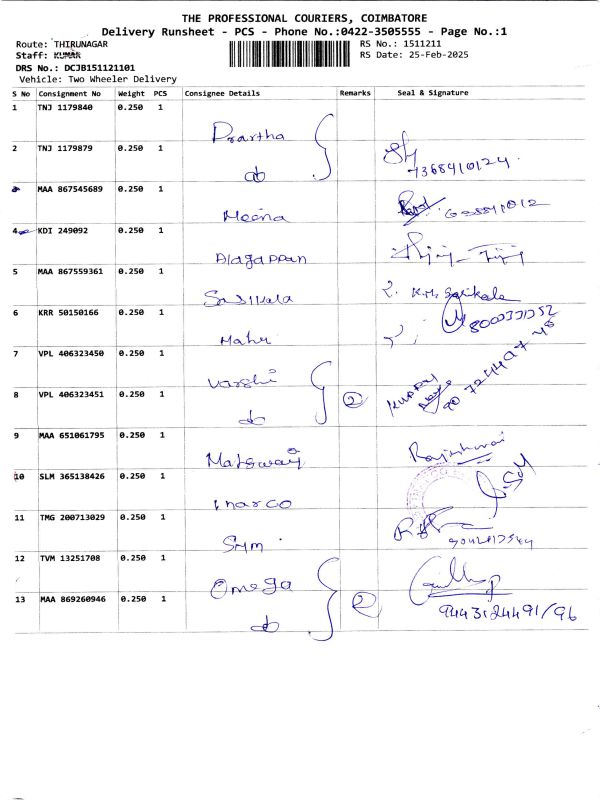 THE PROFESSIONAL COURIERS, COIMBATORE
Delivery Runsheet - PCS - Phone No.:0422-3505555 - Page No.:1
Route: THIRUNAGAR RS No.: 1511211
Staff: KUMAR RS Date: 25-Feb-2025
DRS No.: DCJB151121101
Vehicle: Two Wheeler Delivery
S No Consignment No Weight PCS Consignee Details Remarks Seal & Signature
1 TNJ 1179840 0.250 1
Prartha
2 TNJ 1179879 0.250 1
do 7368410124
3 MAA 867545689 0.250 1
Meena
4 KDI 249092 0.250 1
Alagappan
5 MAA 867559361 0.250 1
Sasikala R. K.M. Sasikala
6 KRR 50150166 0.250 1
Mahi
7 VPL 406323450 0.250 1
Varshi
8 VPL 406323451 0.250 1 2
do
9 MAA 651061795 0.250 1
Rajeshwari
10 SLM 365138426 0.250 1
Inarco
11 TMG 200713029 0.250 1
12 TVM 13251708 0.250 1
Omega
13 MAA 869260946 0.250 1 2
do 9443124491/96